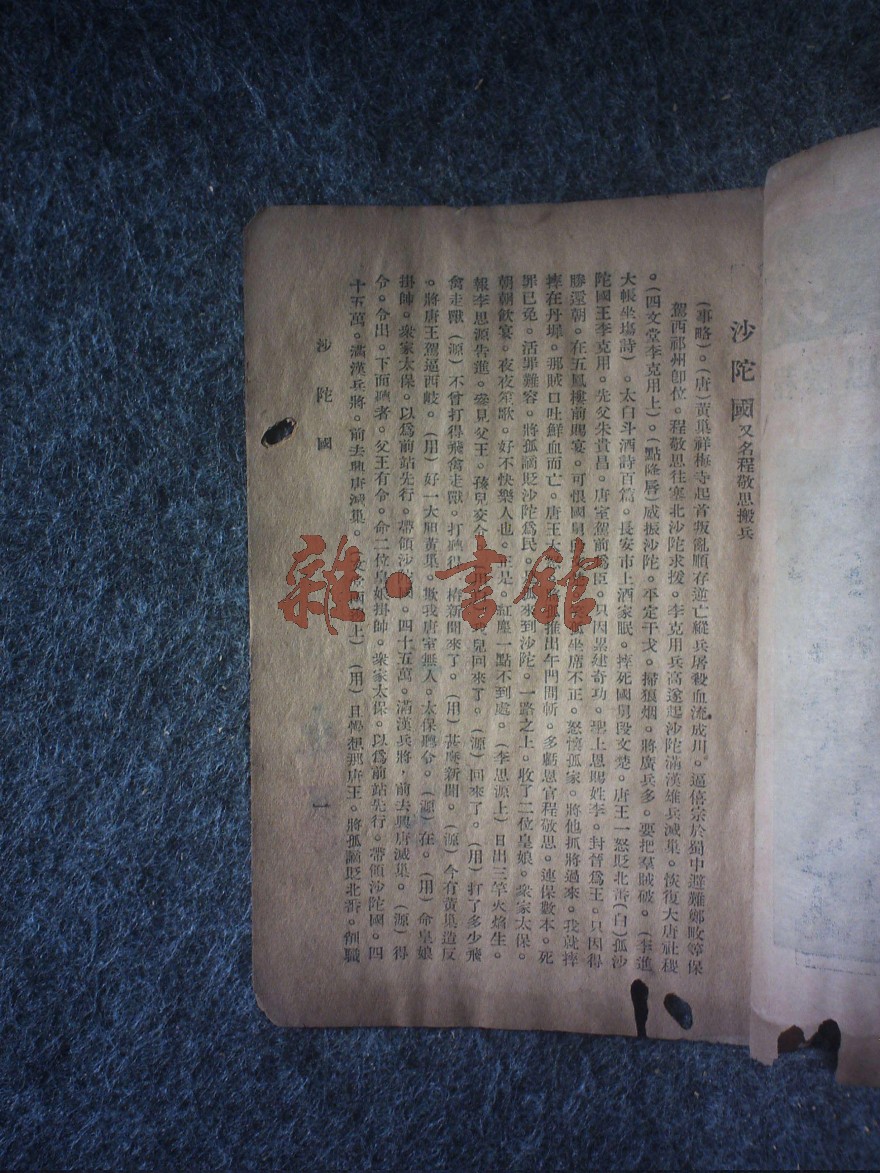 沙陀國又名程敬思搬兵
(事略)。(唐)黃巢祥梅寺起首叛亂順存逆亡縱兵屠殺血流成川。逼僖宗於蜀中避難鄭畋等保
駕西祁州卽位。程敬思往塞北沙陀求援。李克用兵高遂起沙陀滿漢雄兵滅巢。恢復大唐社稷
。(四文堂李克用上)。(點降唇)威振沙陀。平定干戈。掃狼烟。將廣兵多。要把羣賊破。(李進
大帳坐塲詩)。太白斗酒詩百篇。長安市上酒家眠。摔死國舅段文楚。唐王一怒貶北番(白)孤沙
陀國王李克用。先父朱貴昌。唐室駕前爲臣。只因累建奇功。聖上恩賜姓李。封晉爲王。只因得
勝還朝。在五鳳樓前賜宴。可恨國舅段文楚。坐席不正。怒惱孤家。將他抓將過來。我就摔
摔在丹墀。那賊口吐鮮血而亡。唐王大怒。將孤推出午門問斬。多虧恩官程敬思。連保數本。死
罪已免。活罪難容。將孤謫貶沙陀爲民。來到沙陀。一路之上。收了二位皇娘。衆家太保。
朝朝飲宴。夜夜笙歌。好不快樂人也。正是。紅塵一點不到處。(李思源上)日出三竿火焰生。
報李思源告進。參見父王。孩兒交令。兒回來了。(源)回來了。(用)打了多少飛
禽走獸(源)不曾打得飛禽走獸。打聽得一樁新聞來了。(用)甚麽新聞。(源)今有黃巢造反
。將唐王駕逼西岐。(用)好一大胆黃巢。欺我唐室無人。太保聽令。(源)在。(用)命皇娘
掛帥。衆家太保。以爲前站先行。帶領沙陀國。四十五萬。滿漢兵將，前去興唐滅巢。(源)得
令。令出。下面聽者。父王有令。命二位皇娘掛帥。衆家太保。以爲前站先行。帶領沙陀國。四
十五萬。滿漢兵將。前去興唐滅巢。上)(用)且喥想那唐王。將孤謫貶北番。削職
沙陀國
一
雜·書館